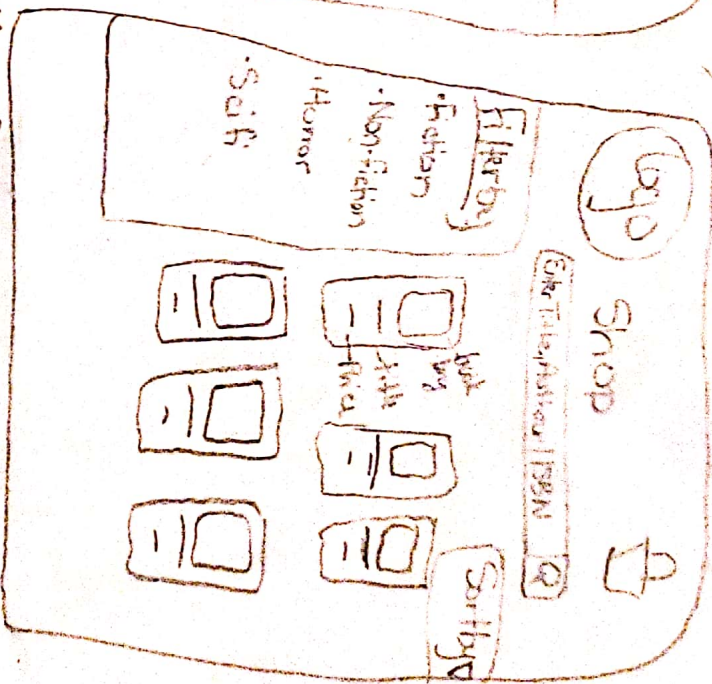 Logo
Shop
Enter Title, Author, ISBN
Sort by
Filter by
· Fiction
· Non-Fiction
· Horror
· Sci fi
title
Price